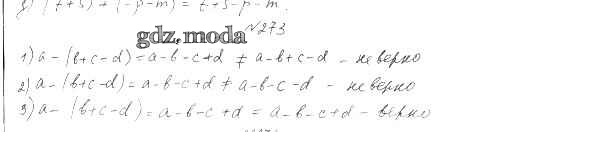 (t+s) + (-p-m) = t+s-p-m.
№273
gdz.moda
1) a-(b+c-d) = a-b-c+d ≠ a-b+c-d - не верно
2) a-(b+c-d) = a-b-c+d ≠ a-b-c-d - не верно
3) a-(b+c-d) = a-b-c+d = a-b-c+d - верно